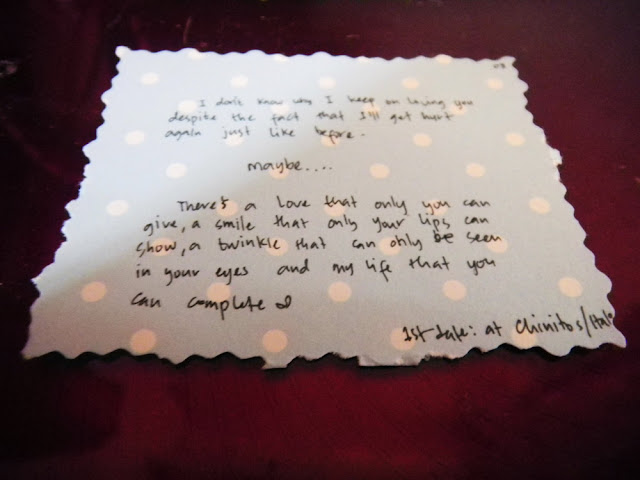 03
I don't know why I keep on loving you
despite the fact that I'll get hurt
again just like before.
maybe....
There's a love that only you can
give, a smile that only your lips can
show, a twinkle that can only be seen
in your eyes and my life that you
can complete
1st date: at Chinitos/